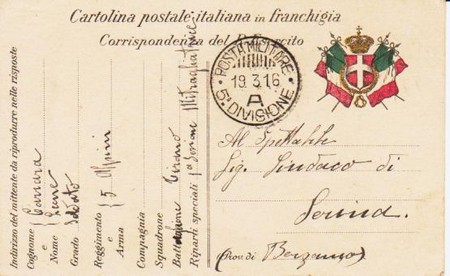 Cartolina postale italiana in franchigia
Corrispondenza del R. Esercito
POSTA MILITARE
19.3.16
A
5ª DIVISIONE
Al Spettabile
Sig. Sindaco di
Serina.
(Prov. di Bergamo)
Indirizzo del mittente da riprodurre nelle risposte
Cognome Carrara
e
Nome
Grado Soldato
Reggimento 5 Alpini
e
Arma
Compagnia
Squadrone
Battaglione Tirano
Riparti speciali 1ª Sezione Mitragliatrici